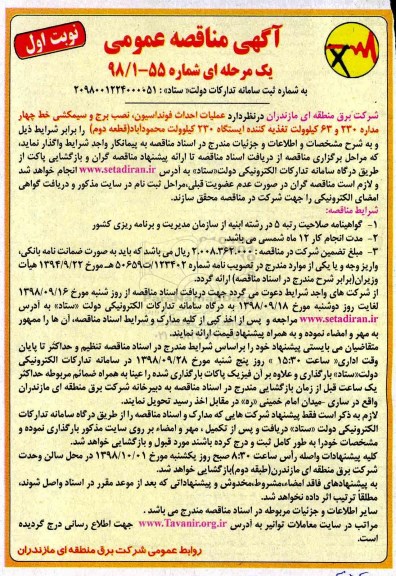 نوبت اول
آگهی مناقصه عمومی
یک مرحله ای شماره ۵۵-۹۸/۱
به شماره ثبت سامانه تدارکات دولت« ستاد» : ۲۰۹۸۰۰۱۲۲۴۰۰۰۰۵۱
شرکت برق منطقه ای مازندران درنظردارد عملیات احداث فونداسیون، نصب برج و سیمکشی خط چهار
مداره ۲۳۰ و ۶۳ کیلوولت تغذیه کننده ایستگاه ۲۳۰ کیلوولت محمودآباد(قطعه دوم) را برابر شرایط ذیل
و به شرح مشخصات و اطلاعات و جزئیات مندرج در اسناد مناقصه به پیمانکار واجد شرایط واگذار نماید،
که مراحل برگزاری مناقصه از دریافت اسناد مناقصه تا ارائه پیشنهاد مناقصه گران و بازگشایی پاکت از
طریق درگاه سامانه تدارکات الکترونیکی دولت«ستاد» به آدرس www.setadiran.ir انجام خواهد شد
و لازم است مناقصه گران در صورت عدم عضویت قبلی،مراحل ثبت نام در سایت مذکور و دریافت گواهی
امضای الکترونیکی را جهت شرکت در مناقصه محقق سازند.
شرایط مناقصه:
۱- گواهینامه صلاحیت رتبه ۵ در رشته ابنیه از سازمان مدیریت و برنامه ریزی کشور
۲- مدت انجام کار ۱۲ ماه شمسی می باشد.
۳- مبلغ تضمین شرکت در مناقصه : ۲.۰۰۸.۳۶۲.۰۰۰ ریال می باشد که باید به صورت ضمانت نامه بانکی،
واریز وجه و یا یکی از موارد مندرج در تصویب نامه شماره ۱۲۳۴۰۲/ت۵۰۶۵۹ هـ مورخ ۱۳۹۴/۹/۲۲ هیأت
وزیران(برابر شرح مندرج در اسناد مناقصه) ارائه گردد.
از شرکت های واجد شرایط دعوت می گردد جهت دریافت اسناد مناقصه از روز شنبه مورخ ۱۳۹۸/۰۹/۱۶
لغایت روز دوشنبه مورخ ۱۳۹۸/۰۹/۱۸ به درگاه سامانه تدارکات الکترونیکی دولت «ستاد» به آدرس
www.setadiran.ir مراجعه و پس از اخذ کپی از کلیه مدارک و شرایط اسناد مناقصه، آن ها را ممهور
به مهر و امضاء نموده و به همراه پیشنهاد قیمت ارائه نمایند.
متقاضیان می بایستی پیشنهاد خود را براساس شرایط مندرج در اسناد مناقصه تنظیم و حداکثر تا پایان
وقت اداری« ساعت ۱۵:۳۰ » روز پنج شنبه مورخ ۱۳۹۸/۰۹/۲۸ در سامانه تدارکات الکترونیکی
دولت«ستاد» بارگذاری و علاوه بر آن فیزیک پاکات بارگذاری شده را عینا به همراه ضمائم مربوطه حداکثر
یک ساعت قبل از زمان بازگشایی مندرج در اسناد مناقصه به دبیرخانه شرکت برق منطقه ای مازندران
واقع در ساری -میدان امام خمینی «ره» در مقابل اخذ رسید تحویل نمایند.
لازم به ذکر است فقط پیشنهاد شرکت هایی که مدارک و اسناد مناقصه را از طریق درگاه سامانه تدارکات
الکترونیکی دولت «ستاد» دریافت و پس از تکمیل ، مهر و امضاء بر روی سایت مذکور بارگذاری نموده و
مشخصات خودرا به طور کامل ثبت و درج کرده باشند مورد قبول و بازگشایی خواهد شد.
کلیه پیشنهادات واصله رأس ساعت ۸:۳۰ صبح روز یکشنبه مورخ ۱۳۹۸/۱۰/۰۱ در محل سالن وحدت
شرکت برق منطقه ای مازندرن(طبقه دوم)بازگشایی خواهد شد.
به پیشنهادهای فاقد امضاء،مشروط،مخدوش و پیشنهاداتی که بعد از موعد مقرر در اسناد واصل شوند،
مطلقا ترتیب اثر داده نخواهد شد.
سایر اطلاعات و جزئیات مربوطه در اسناد مناقصه مندرج می باشد .
مراتب در سایت معاملات توانیر به آدرس www.Tavanir.org.ir جهت اطلاع رسانی درج گردیده
است.
روابط عمومی شرکت برق منطقه ای مازندران